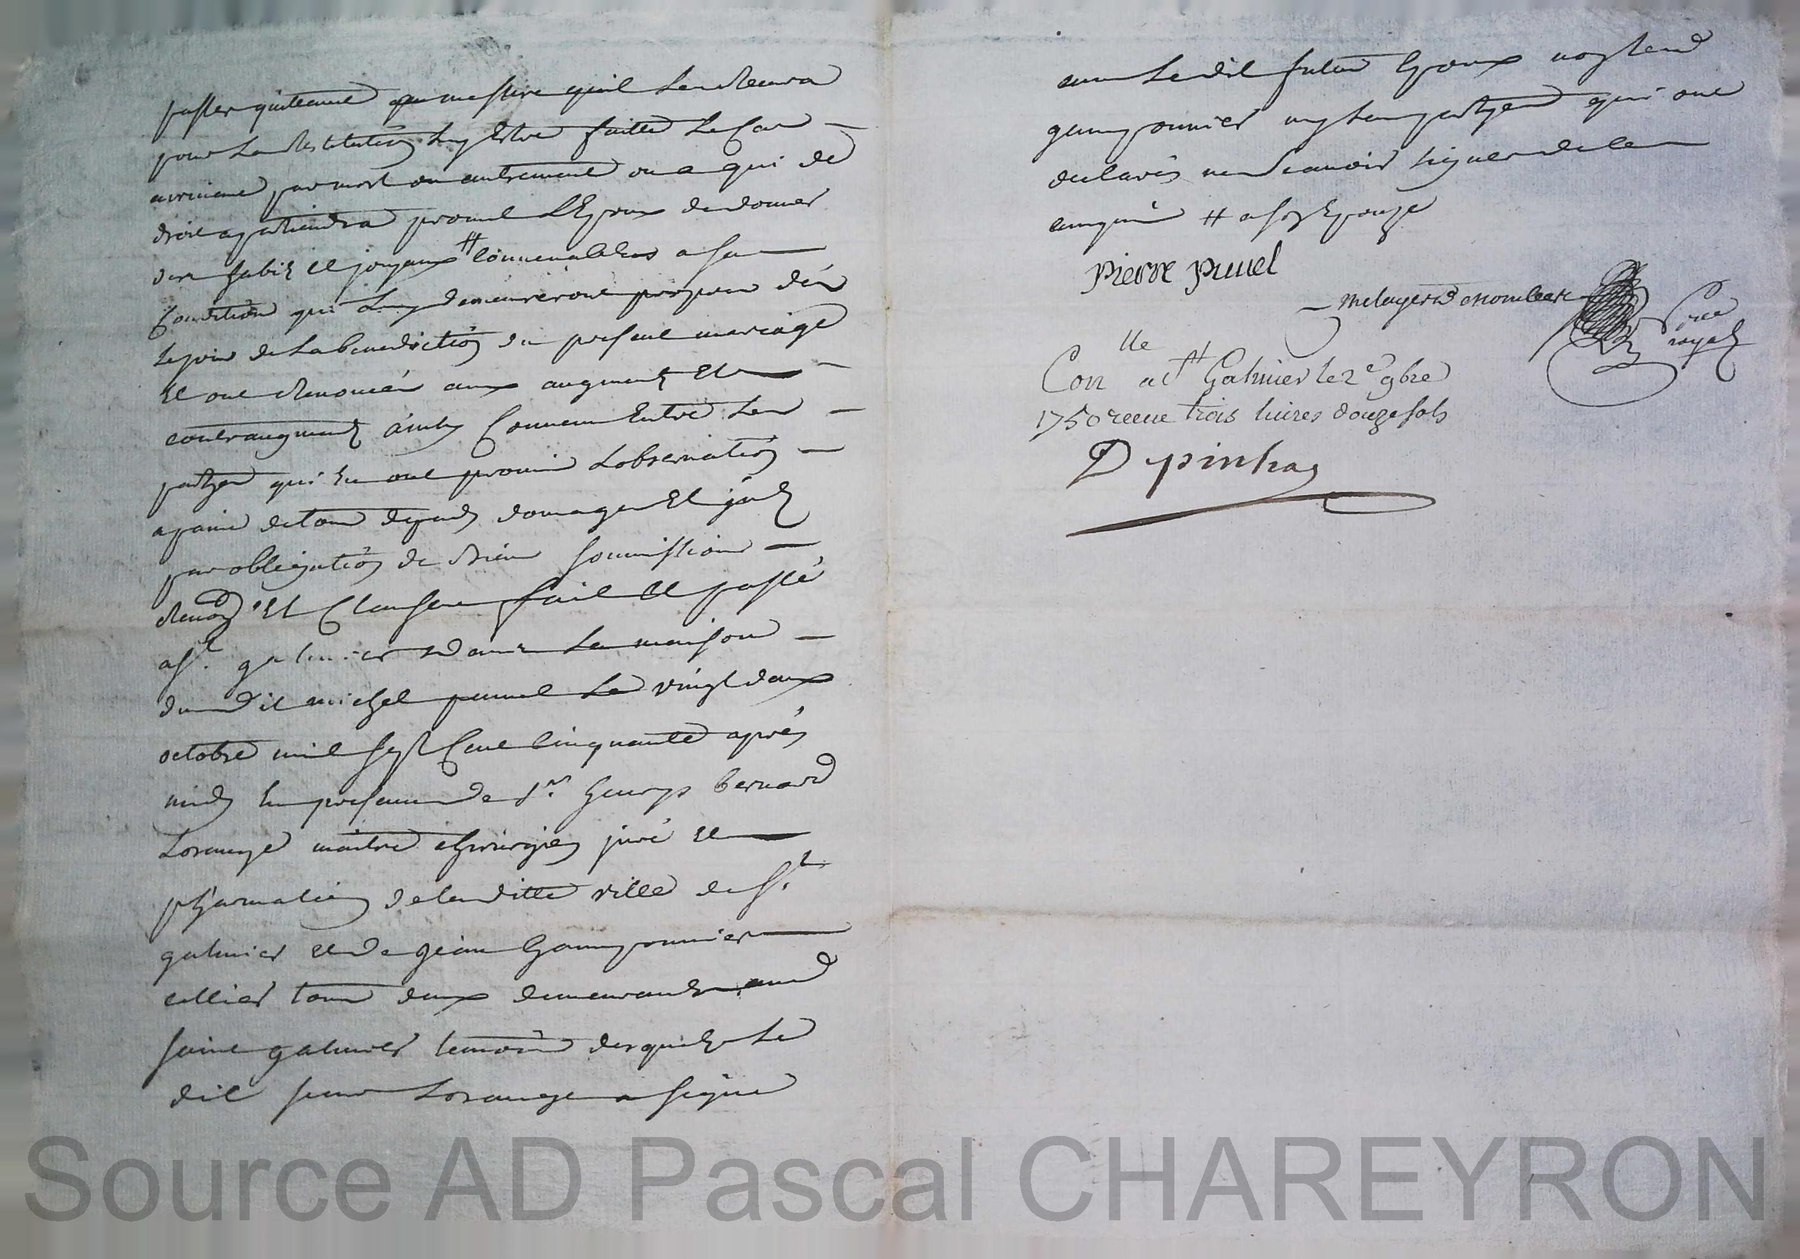 passer quittance a mesure quil Le Recevra
pour La Restitution Luy Estre faitte Le Cas
arrivant par mort ou autrement ou a qui de
droit apartiendra promet LEpoux de donner
des habis et joyaux # Convenables a sa
Condition qui Luy demeureront propres dés
Le jour de La benediction du present mariage
Et ont Renoncés aux augment Et
contraugment ainsy Convenu Entre Les
partyes qui En ont promis Lobservation
a paine de tous depens domages Et
par obligation de Biens soumissions
Renon Et Clauses fait Et passé
a St galmier dans La maison
du dit michel punel Le vingt deux
octobre mil sept Cent Cinquante aprés
midy En presence de Sr georges bernard
Lorange maitre chirurgien juré Et
pharmacien de la ditte ville de St
galmier Et de jean Gamponnier
cellier tous deux demeurants aud
saint galmier temoins desquels Le
dit sieur Lorange a signé
non Le dit futur Epoux ny Led
gamponnier ny Les partyes qui ont
declarés ne scavoir signer de ce
enquis # a son Epouze
pierre punel
nore
royal
Conlle a St Galmier le 2e 9bre
1750 receu trois livres douze sols
Depinhac
Source AD Pascal CHAREYRON